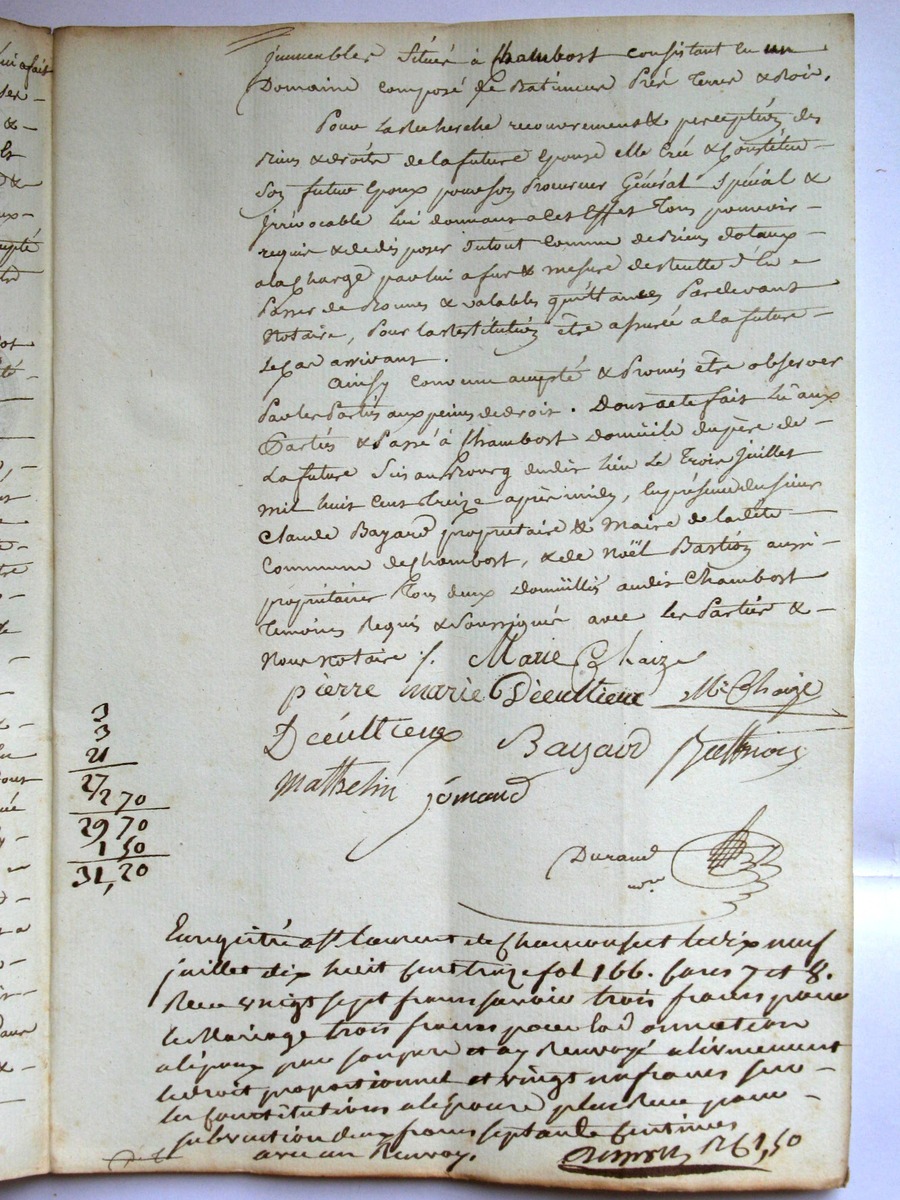 immeubles Situés à Chambost consistant en un
Domaine composé de Batimens Prés Terres & Bois.
Pour la Recherche recouvrement & perception des
Biens & droits de la future Epouse elle Crée & Constitue
Son futur Epoux pour son Procureur Général Spécial &
irrévocable Lui donnant a cet Effet Tous pouvoirs
requis & de disposer du tout Comme de Biens dotaux
a la Charge par lui a fur & mesure de recette d'En
Passer de Bonnes & valables quittances Pardevant
Notaire, Pour la Restitution être assurée a la future
Le Cas arrivant.
Ainsy Convenu accepté & Promis être observer
Par les Parties aux peines de droit. Dont acte fait Lû aux
Parties & Passé à Chambost domicile du père de
La future Sis au Bourg dudit Lieu Le Trois Juillet
mil huit Cent Treize après midy, En présence du sieur
Claude Bayard propriétaire & Maire de la dite
Commune de Chambost, & de Noël Bastion aussi
propriétaire Tous deux domiciliés audit Chambost
Témoins Requis & Soussignés avec les Parties &
Nous Notaire ./. Marie Chaize
pierre marie Décultieux Mie Chaize
Décultieux Bayard
Mathelin
3
3
21
27
2 70
29 70
1 50
31,20
Durand
nre
Enregistré a St Laurent de Chamousset le dix neuf
juillet dix huit cent treize fol 166. Cases 7 et 8.
Reçu vingt sept francs savoir trois francs pour
le Mariage trois francs pour la Donnation
a l'époux par son père et ay Renvoyé
le droit proportionnel et vingt un francs sur
les Constitutions a l'épouse plus Reçu pour
subvention deux francs septante Centimes
avec un Renvoy. R 61,50